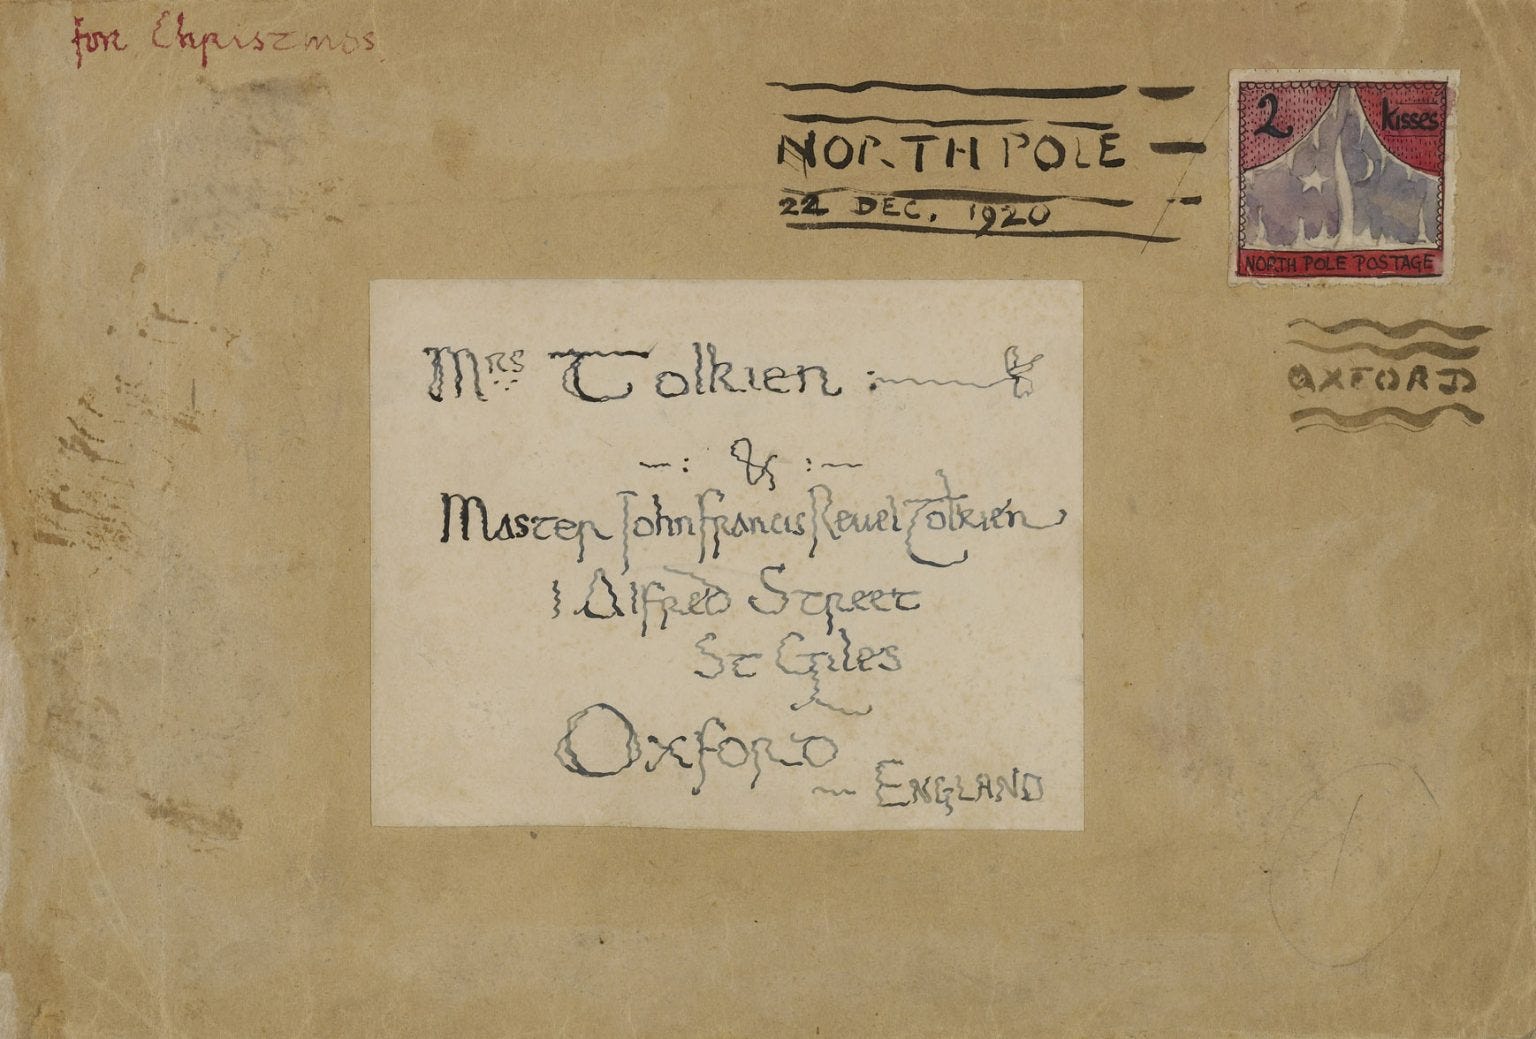 for Christmas
NORTH POLE
22 DEC. 1920
2 kisses
NORTH POLE POSTAGE
OXFORD
Mrs Tolkien
&
Master John Francis Reuel Tolkien
1 Alfred Street
St Giles
Oxford
ENGLAND